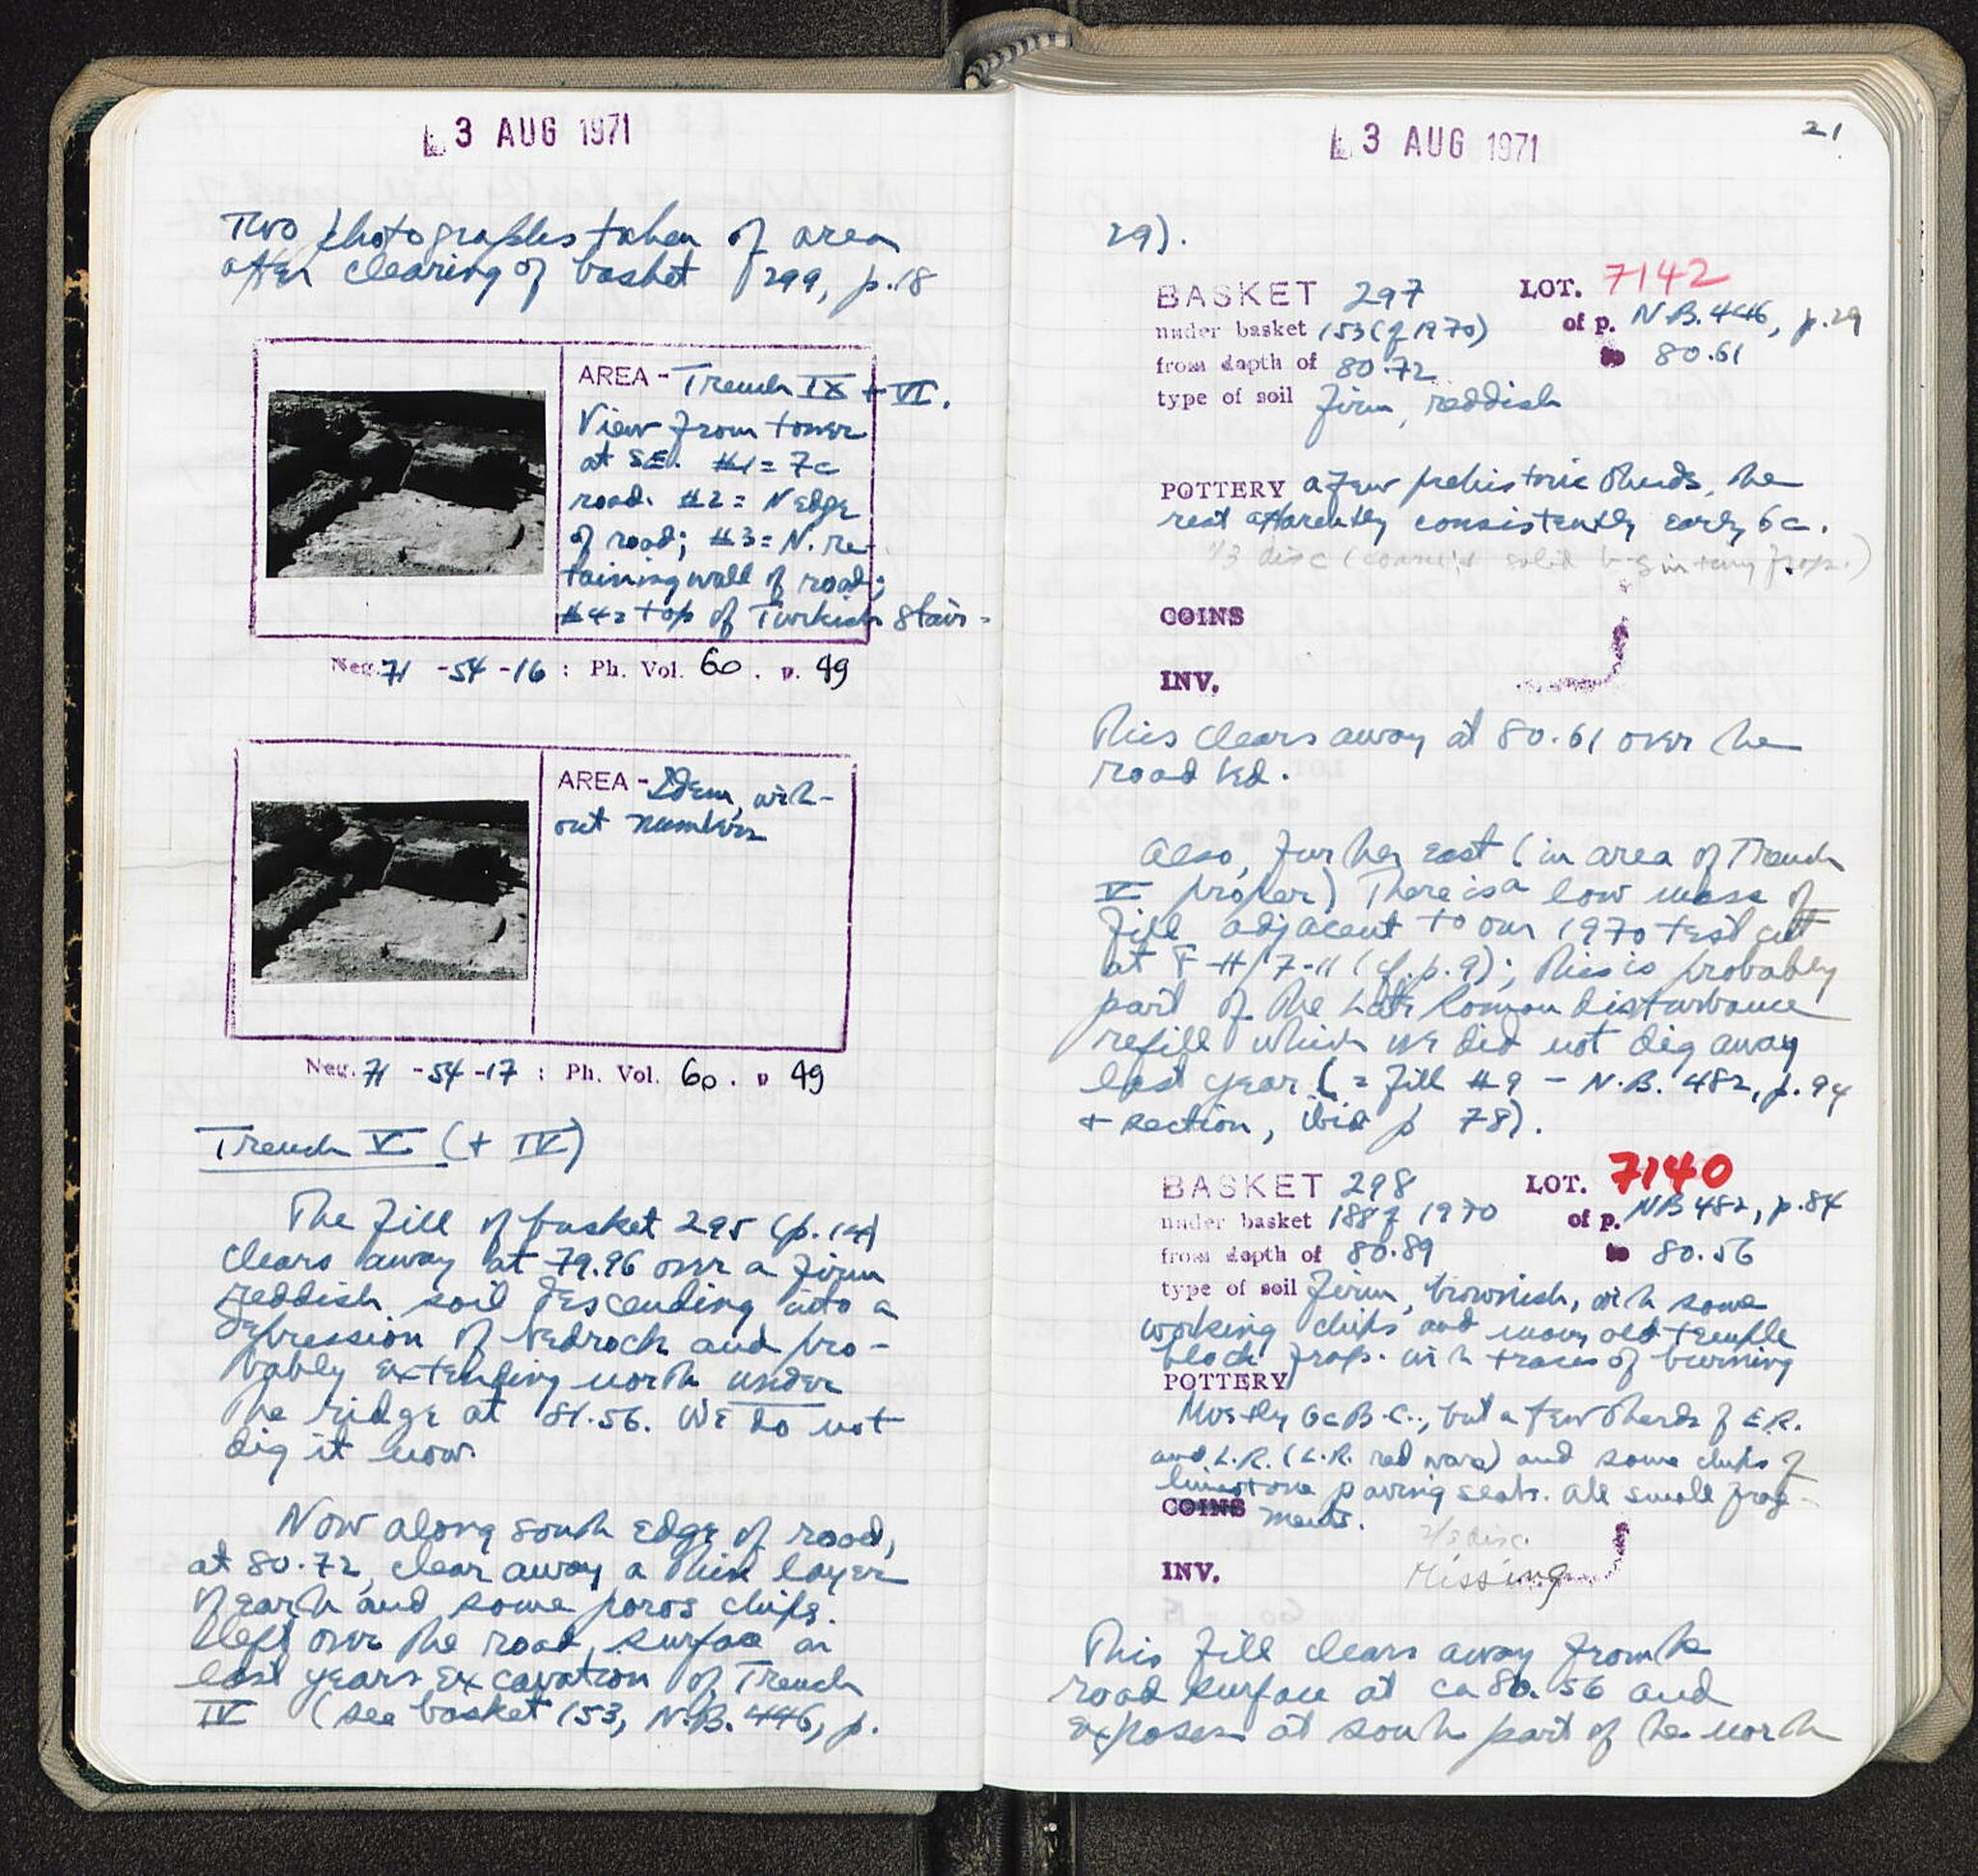 3 AUG 1971
Two photographs taken of area
after clearing of basket 299, p.18
AREA - Trench IX + VI.
View from tower
at SE. #1 = 7c
road. #2 = N edge
of road; #3 = N. re-
taining wall of road;
#4 = top of Turkish stair-
Neg. 71 -54 -16 : Ph. Vol. 60 . p. 49
AREA - Idem, with-
out numbers
Neg. 71 -54 -17 : Ph. Vol. 60 . p 49
Trench V (+ IV)
The fill of basket 295 (p. 14)
clears away at 79.96 over a firm
reddish soil descending into a
depression of bedrock and pro-
bably extending north under
the ridge at 81.56. We do not
dig it now.
Now along south edge of road,
at 80.72, clear away a thin layer
of earth and some poros chips.
left over the road surface in
last years excavation of Trench
IV (see basket 153, N.B. 446, p.
3 AUG 1971
21
29).
BASKET 297 LOT. 7142
under basket 153 (of 1970) of p. N.B. 446, p. 29
from depth of 80.72 to 80.61
type of soil firm, reddish
POTTERY a few prehistoric sherds, the
rest apparently consistently early 6c.
1/3 disc
COINS
INV.
This clears away at 80.61 over the
road bed.
Also, further east (in area of Trench
V proper) There is a low mass of
fill adjacent to our 1970 test cut
at F-H/7-11 (cf. p. 9); this is probably
part of the Late Roman disturbance
refill which we did not dig away
last year (= fill #9 - N.B. 482, p. 94
+ section, ibid p 78).
BASKET 298 LOT. 7140
under basket 188 of 1970 of p. NB 482, p. 84
from depth of 80.89 to 80.56
type of soil firm, brownish, with some
working chips and many old temple
block frags. with traces of burning
POTTERY
Mostly 6c B.C., but a few sherds of E.R.
and L.R. (L.R. red ware) and some chips of
limestone paving seats. All small frag-
COINS ments.
2/3 disc.
INV. Missing
This fill clears away from the
road surface at ca 80.56 and
exposes at south part of the north